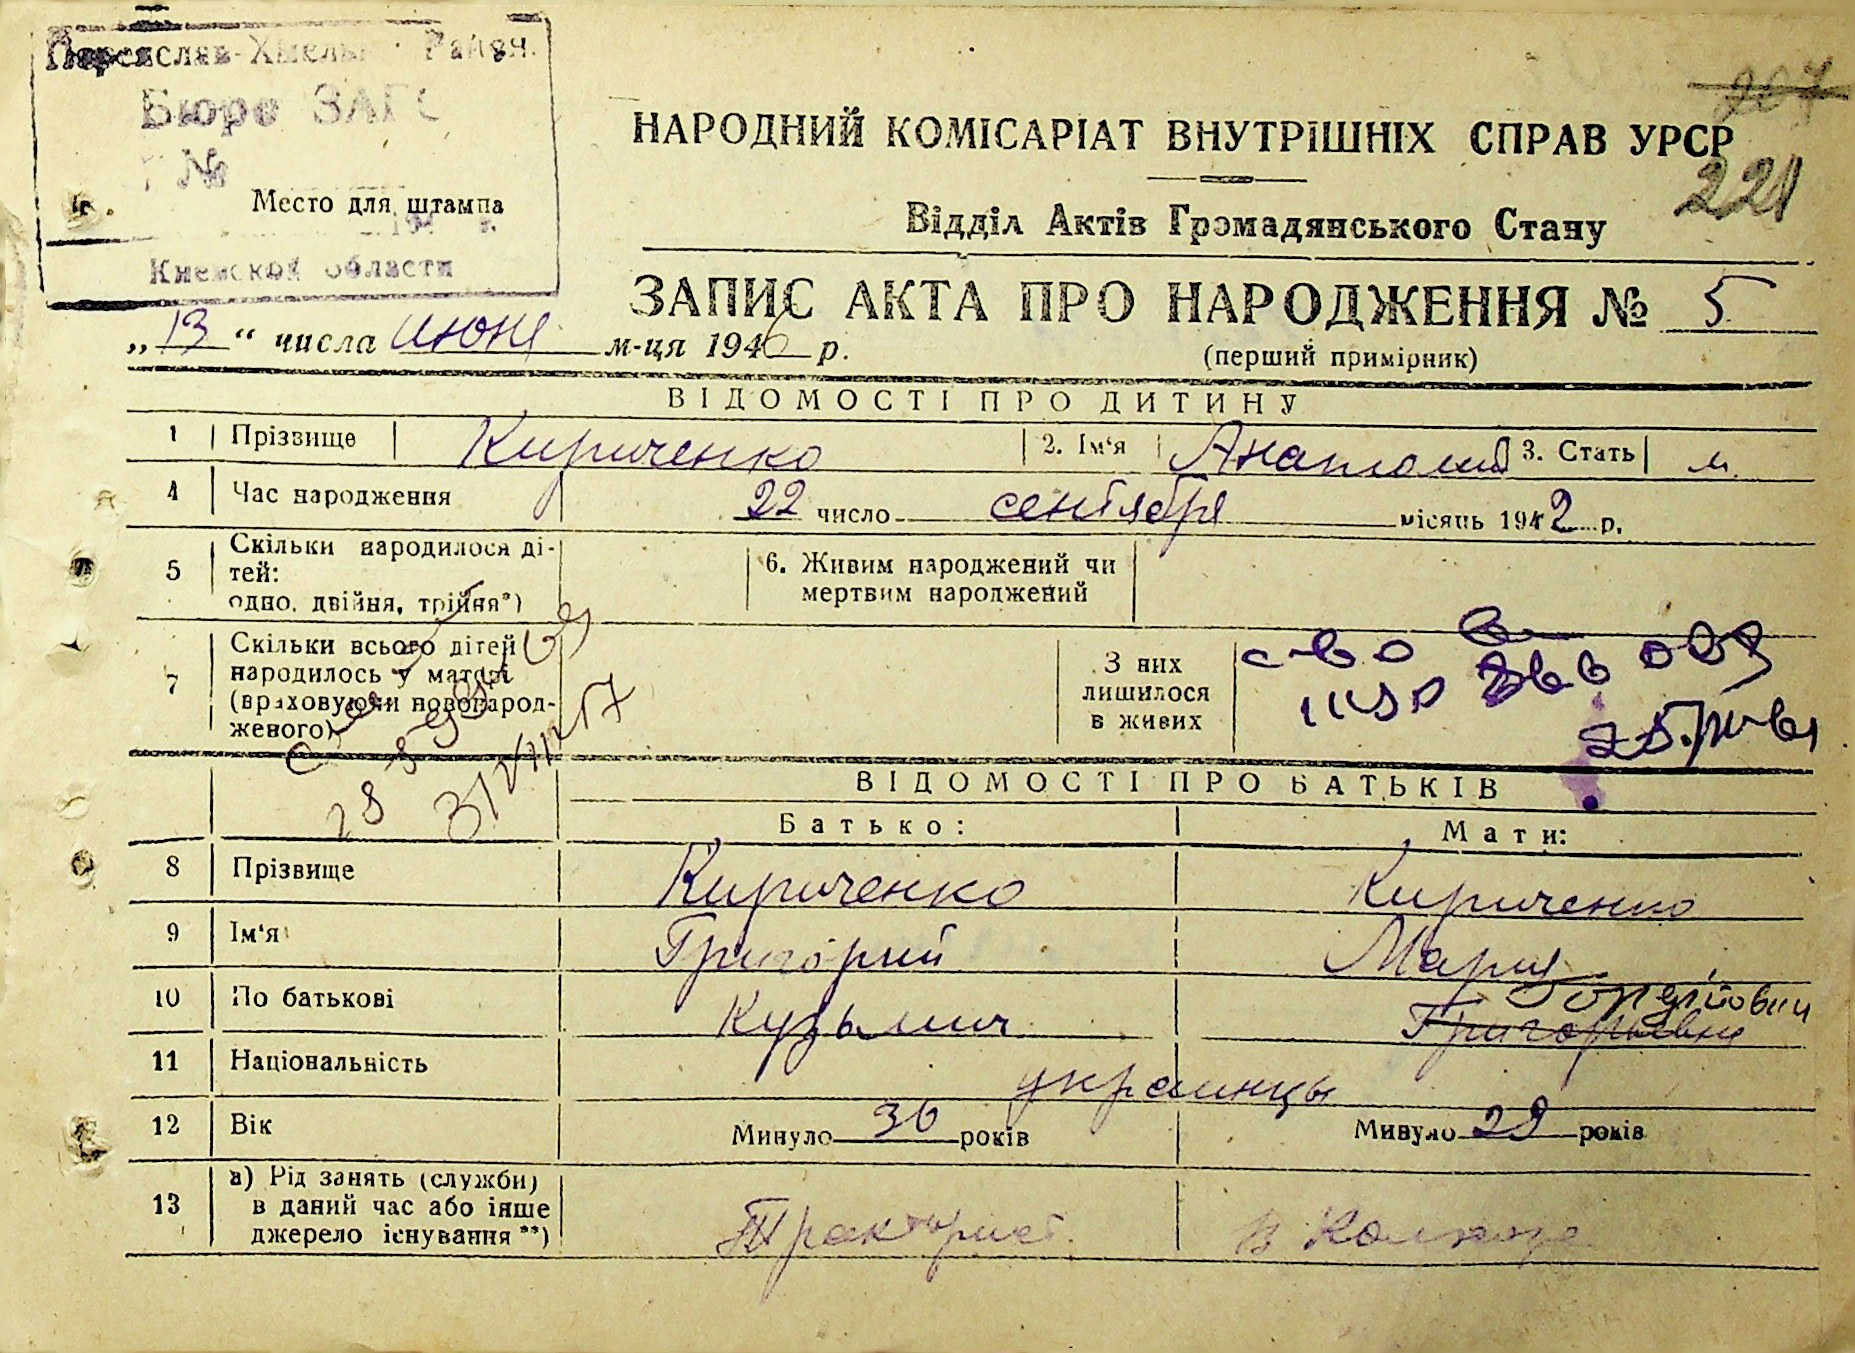 Переяслав-Хмельн Район.
Бюро ЗАГС
№
Место для штампа
194 г.
Киевской области
207
221
НАРОДНИЙ КОМІСАРІАТ ВНУТРІШНІХ СПРАВ УРСР
Відділ Актів Громадянського Стану
ЗАПИС АКТА ПРО НАРОДЖЕННЯ № 5
„13“ числа июня м-ця 1946 р.
(перший примірник)
ВІДОМОСТІ ПРО ДИТИНУ
1 Прізвище Кириченко 2. Ім'я Анатолий 3. Стать м.
4 Час народження 22 число сентября місяць 1942 р.
5 Скільки народилося ді-
тей:
одно, двійня, трійня*)
6. Живим народжений чи
мертвим народжений
7 Скільки всього дітей
народилось у матері
(враховуючи новонарод-
женого)
З них
лишилося
в живих
ВІДОМОСТІ ПРО БАТЬКІВ
Батько: Мати:
8 Прізвище Кириченко Кириченко
9 Ім'я Григорий Мария
10 По батькові Кузьмич Григорьевна
11 Національність украинцы
12 Вік Минуло 30 років Минуло 29 років
13 а) Рід занять (служби)
в даний час або інше
джерело існування **)
Тракторист. в Колхозе